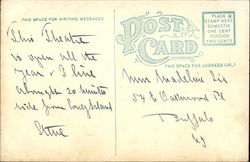 THIS SPACE FOR WRITING MESSAGES
This Theatre
is open all the
year - & I live
about 20 minutes
ride from Long Island
POST
CARD
THIS SPACE FOR ADDRESS ONLY
PLACE A
STAMP HERE
DOMESTIC
ONE CENT
FOREIGN
TWO CENTS
Miss Madeline
54 E Oakwood Pl
Buffalo
NY